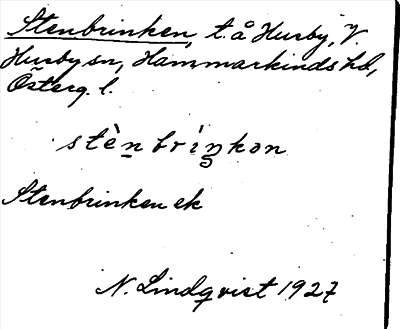 Stenbrinken, t. å Husby, V.
Husby sn, Hammarkinds hd,
Österg. l.
stèn brìŋkən
Stenbrinken ek
N. Lindqvist 1927